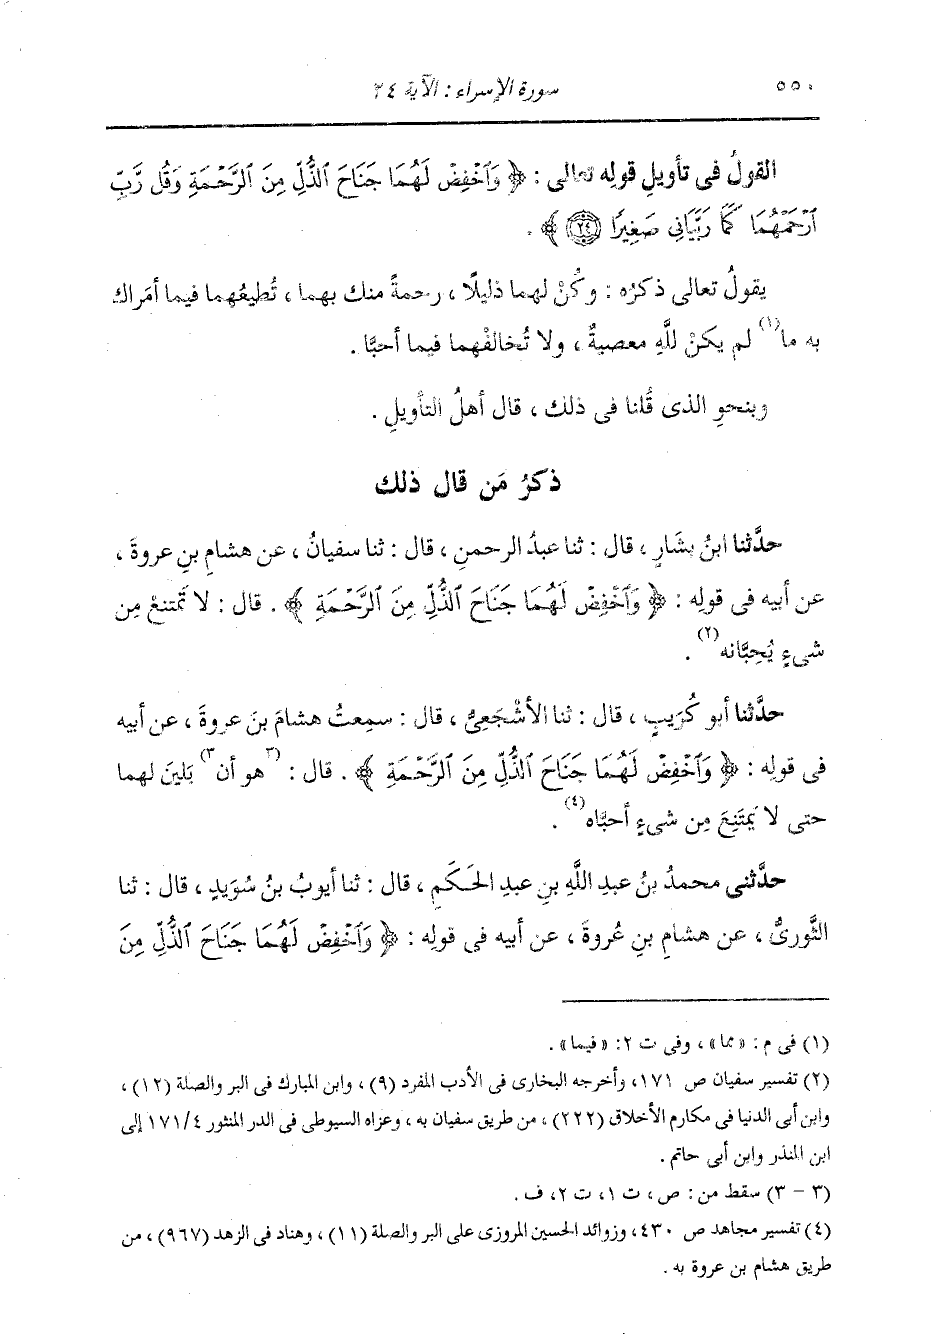 ٥٥٠ سورة الإسراء : الآية ٢٤
القولُ فى تأويلِ قولِه تعالى : ﴿ وَٱخْفِضْ لَهُمَا جَنَاحَ ٱلذُّلِّ مِنَ ٱلرَّحْمَةِ وَقُل رَّبِّ
ٱرْحَمْهُمَا كَمَا رَبَّيَانِى صَغِيرًا ﴿٢٤﴾ ﴾ .
يقولُ تعالى ذكرُه : وكُنْ لهما ذليلًا ، رحمةً منك بهما ، تُطيعُهما فيما أمَراك
به ما(١) لم يكنْ للَّهِ معصيةٌ ، ولا تُخالفْهما فيما أحبَّا .
وبنحوِ الذى قُلنا فى ذلك ، قال أهلُ التأويلِ .
ذكرُ مَن قال ذلك
حدَّثنا ابنُ بشارٍ ، قال : ثنا عبدُ الرحمنِ ، قال : ثنا سفيانُ ، عن هشامِ بنِ عروةَ ،
عن أبيه فى قولِه : ﴿ وَٱخْفِضْ لَهُمَا جَنَاحَ ٱلذُّلِّ مِنَ ٱلرَّحْمَةِ ﴾ . قال : لا تَمْتنعْ مِن
شىءٍ يُحِبَّانه(٢) .
حدَّثنا أبو كُرَيبٍ ، قال : ثنا الأشْجَعِىُّ ، قال : سمِعتُ هشامَ بنَ عروةَ ، عن أبيه
فى قولِه : ﴿ وَٱخْفِضْ لَهُمَا جَنَاحَ ٱلذُّلِّ مِنَ ٱلرَّحْمَةِ ﴾ . قال : (٣هو أن٣) يَلينَ لهما
حتى لا يَمتَنِعَ مِن شىءٍ أحبَّاه(٤) .
حدَّثنى محمدُ بنُ عبدِ اللَّهِ بنِ عبدِ الحَكَمِ ، قال : ثنا أيوبُ بنُ سُوَيدٍ ، قال : ثنا
الثَّورىُّ ، عن هشامِ بنِ عُروةَ ، عن أبيه فى قولِه : ﴿ وَٱخْفِضْ لَهُمَا جَنَاحَ ٱلذُّلِّ مِنَ
(١) فى م : «مما» ، وفى ت ٢ : «فيما» .
(٢) تفسير سفيان ص ١٧١، وأخرجه البخارى فى الأدب المفرد (٩) ، وابن المبارك فى البر والصلة (١٢) ،
وابن أبى الدنيا فى مكارم الأخلاق (٢٢٢) ، من طريق سفيان به ، وعزاه السيوطى فى الدر المنثور ١٧١/٤ إلى
ابن المنذر وابن أبى حاتم .
(٣ - ٣) سقط من : ص ، ت ١، ت ٢، ف .
(٤) تفسير مجاهد ص ٤٣٠، وزوائد الحسين المروزى على البر والصلة (١١) ، وهناد فى الزهد (٩٦٧) ، من
طريق هشام بن عروة به .